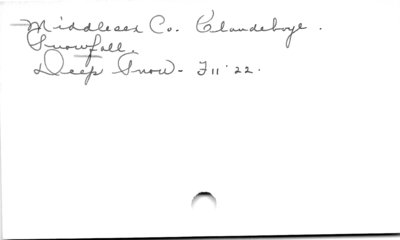 Middlesex Co. Clandeboye.
Snowfall.
Deep Snow - F 11 '22.